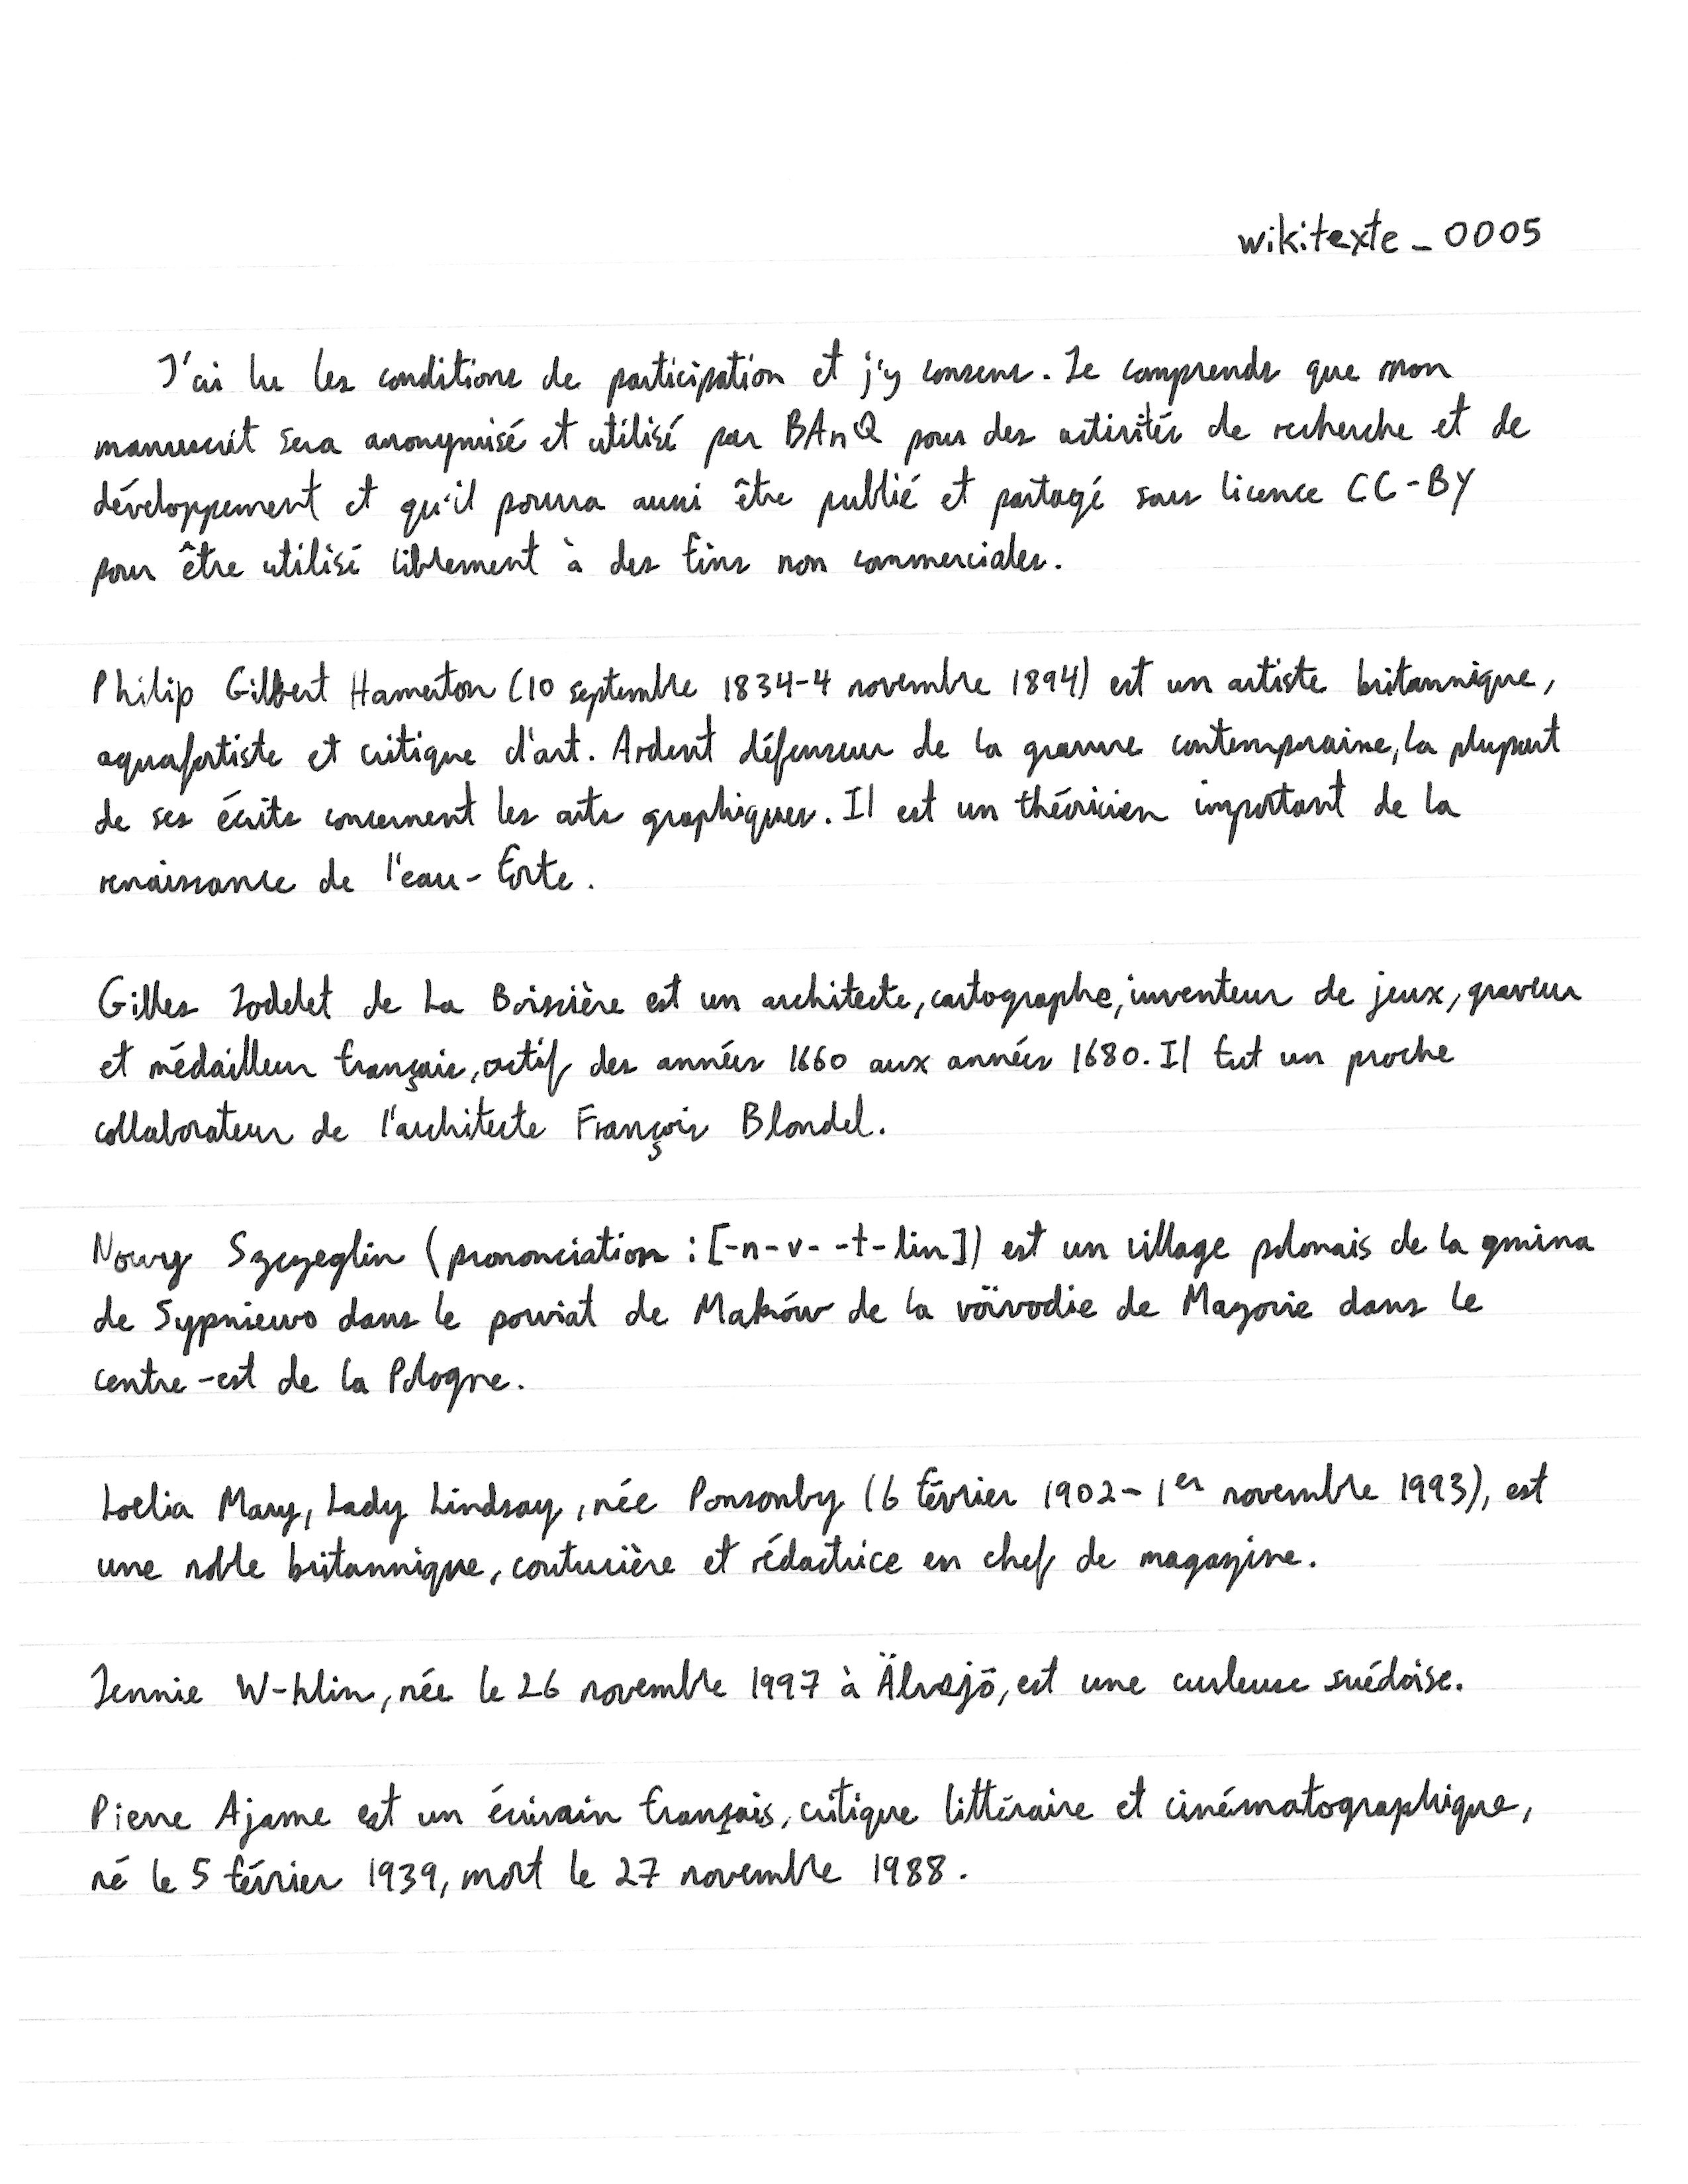 wikitexte_0005
J'ai lu les conditions de participation et j'y consens. Je comprends que mon
manuscrit sera anonymisé et utilisé par BAnQ pour des activités de recherche et de
développement et qu'il pourra aussi être publié et partagé sous licence CC-BY
pour être utilisé librement à des fins non commerciales.
Philip Gilbert Hamerton (10 septembre 1834-4 novembre 1894) est un artiste britannique,
aquafortiste et critique d'art. Ardent défenseur de la gravure contemporaine, la plupart
de ses écrits concernent les arts graphiques. Il est un théoricien important de la
renaissance de l'eau-forte.
Gilles Jodelet de La Boissière est un architecte, cartographe, inventeur de jeux, graveur
et médailleur français, actif des années 1660 aux années 1680. Il fut un proche
collaborateur de l'architecte François Blondel.
Nowy Szczeglin (prononciation : [-n-v- -t-lin]) est un village polonais de la gmina
de Sypniewo dans le powiat de Maków de la voïvodie de Mazovie dans le
centre-est de la Pologne.
Loelia Mary, Lady Lindsay, née Ponsonby (6 février 1902- 1er novembre 1993), est
une noble britannique, couturière et rédactrice en chef de magazine.
Jennie W-hlin, née le 26 novembre 1997 à Älvsjö, est une curleuse suédoise.
Pierre Ajame est un écrivain français, critique littéraire et cinématographique,
né le 5 février 1939, mort le 27 novembre 1988.